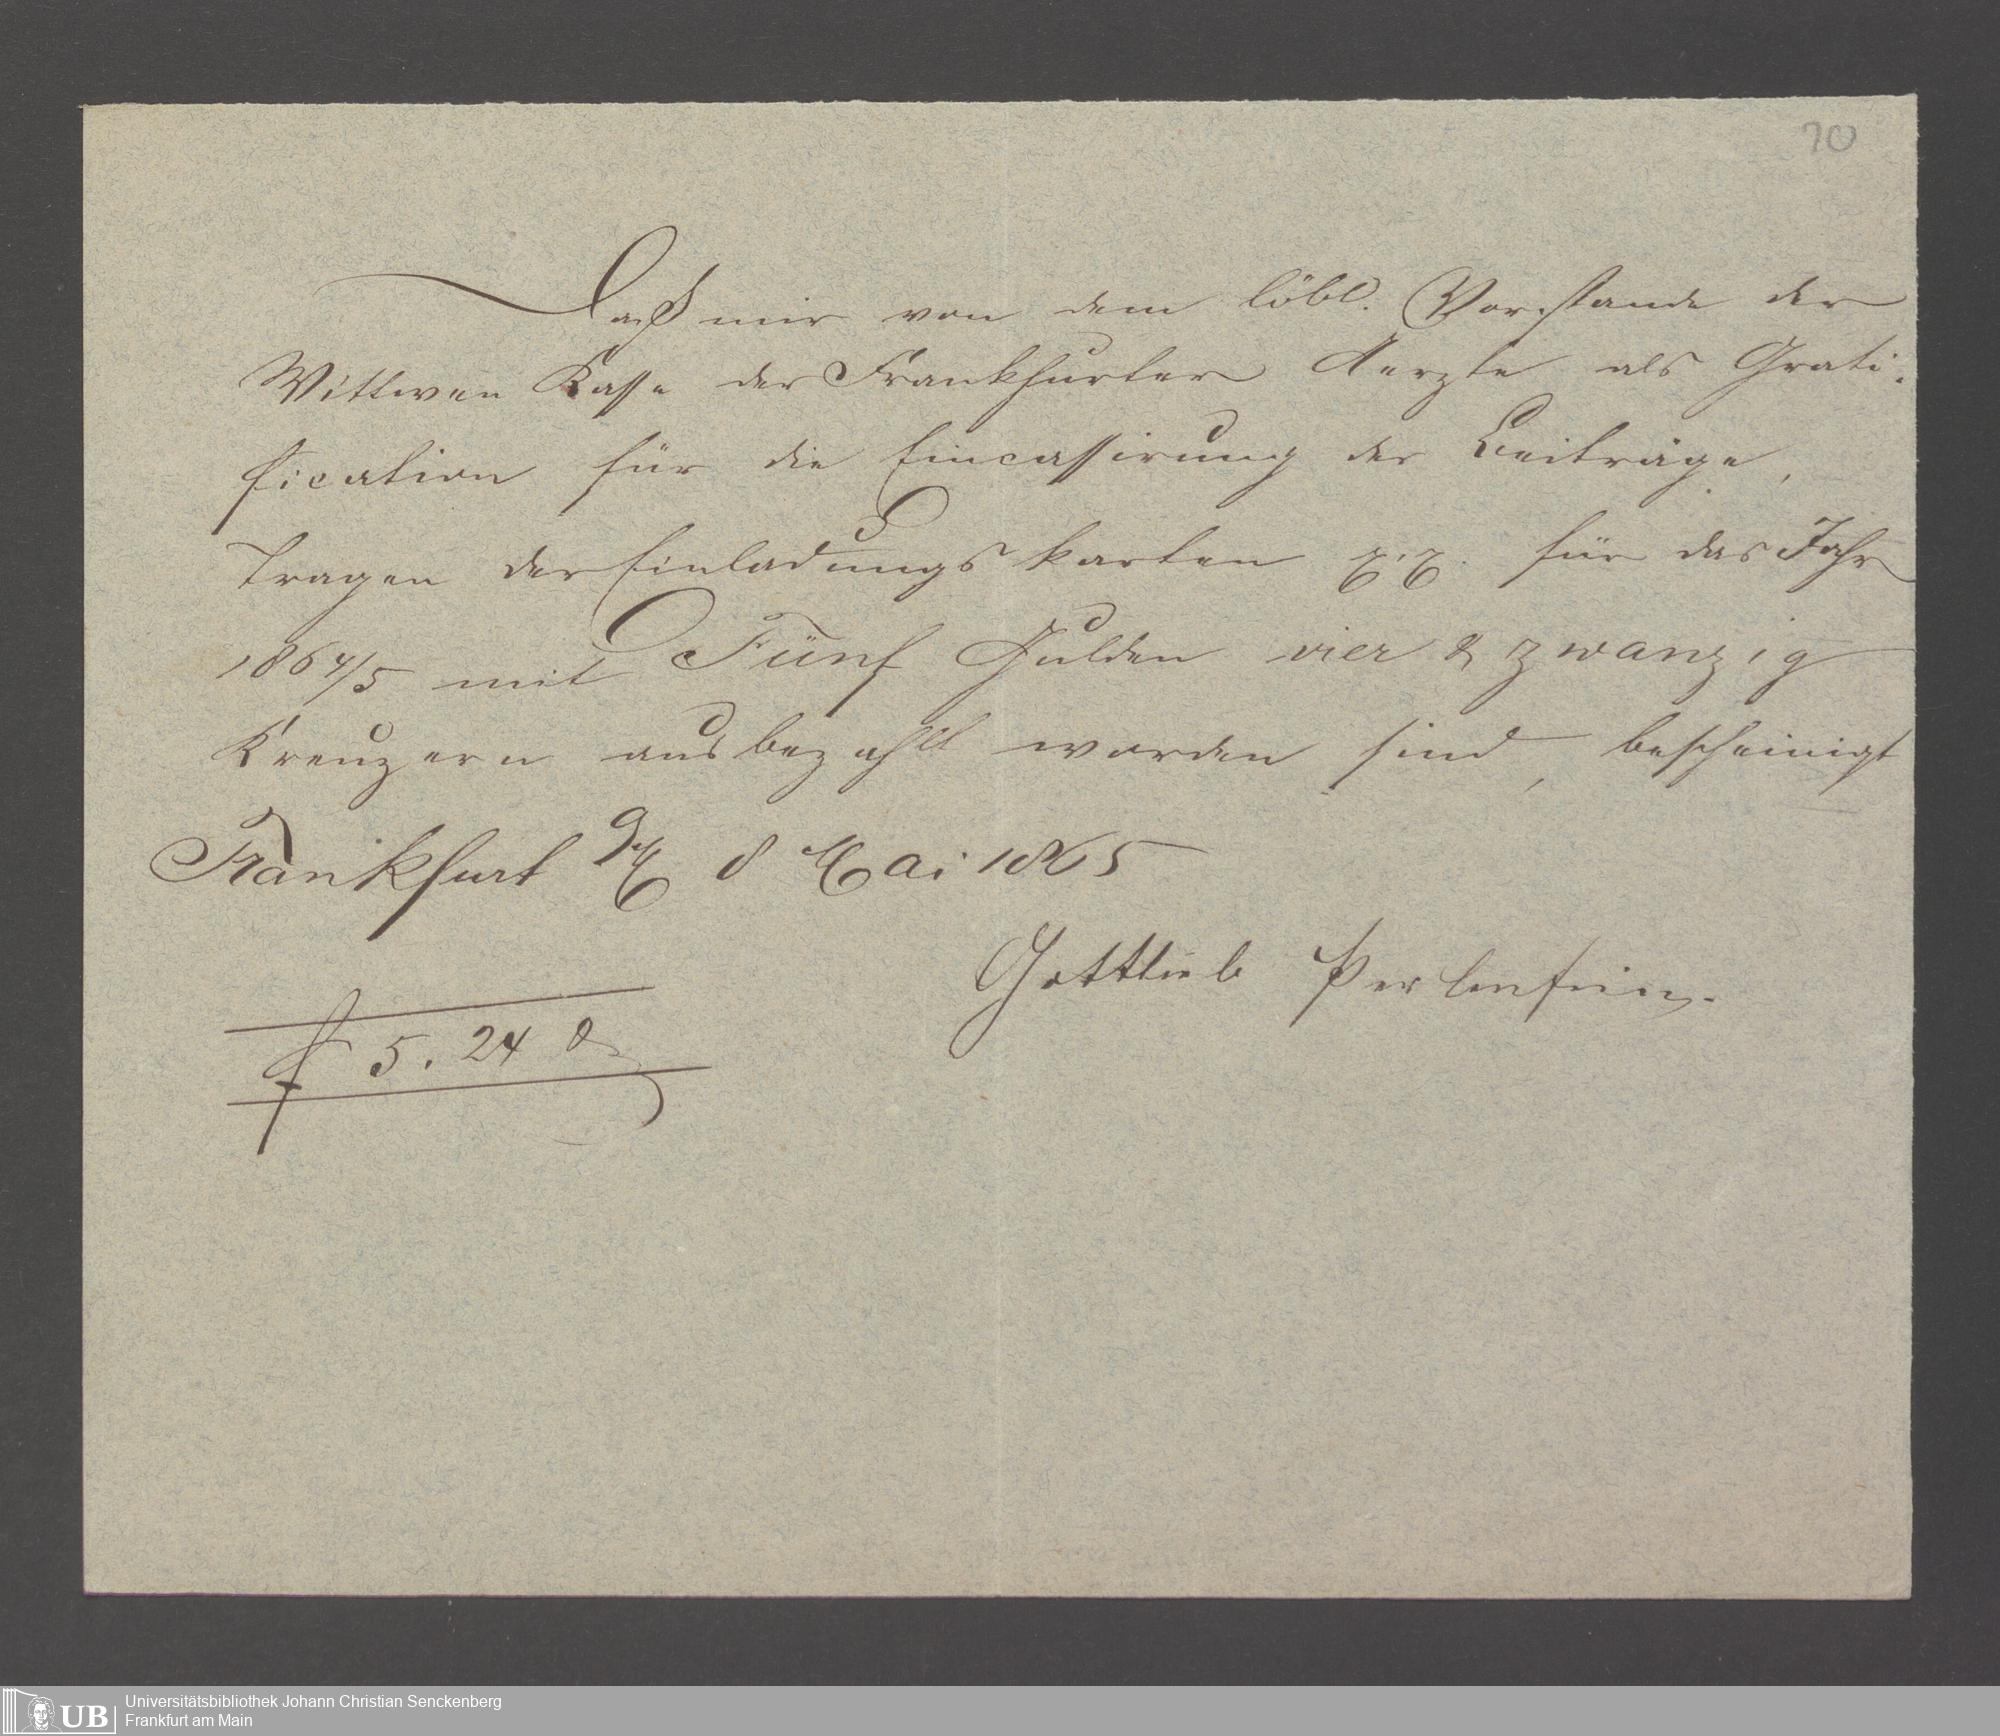 70
Daß mir von dem löbl. Vorstande der
Wittwen Kasse der Frankfurter Aerzte als Grati-
fication für die Eincassirung der Beiträge,
tragen der Einladungskarten für das Jahr
1864/5 mit Fünf Gulden vier & zwanzig
Kreuzern ausbezahlt worden sind, bescheinigt
Frankfurt 8 Mai 1865
Gottlieb Perlenfein.
f 5. 24
UB
Universitätsbibliothek Johann Christian Senckenberg
Frankfurt am Main